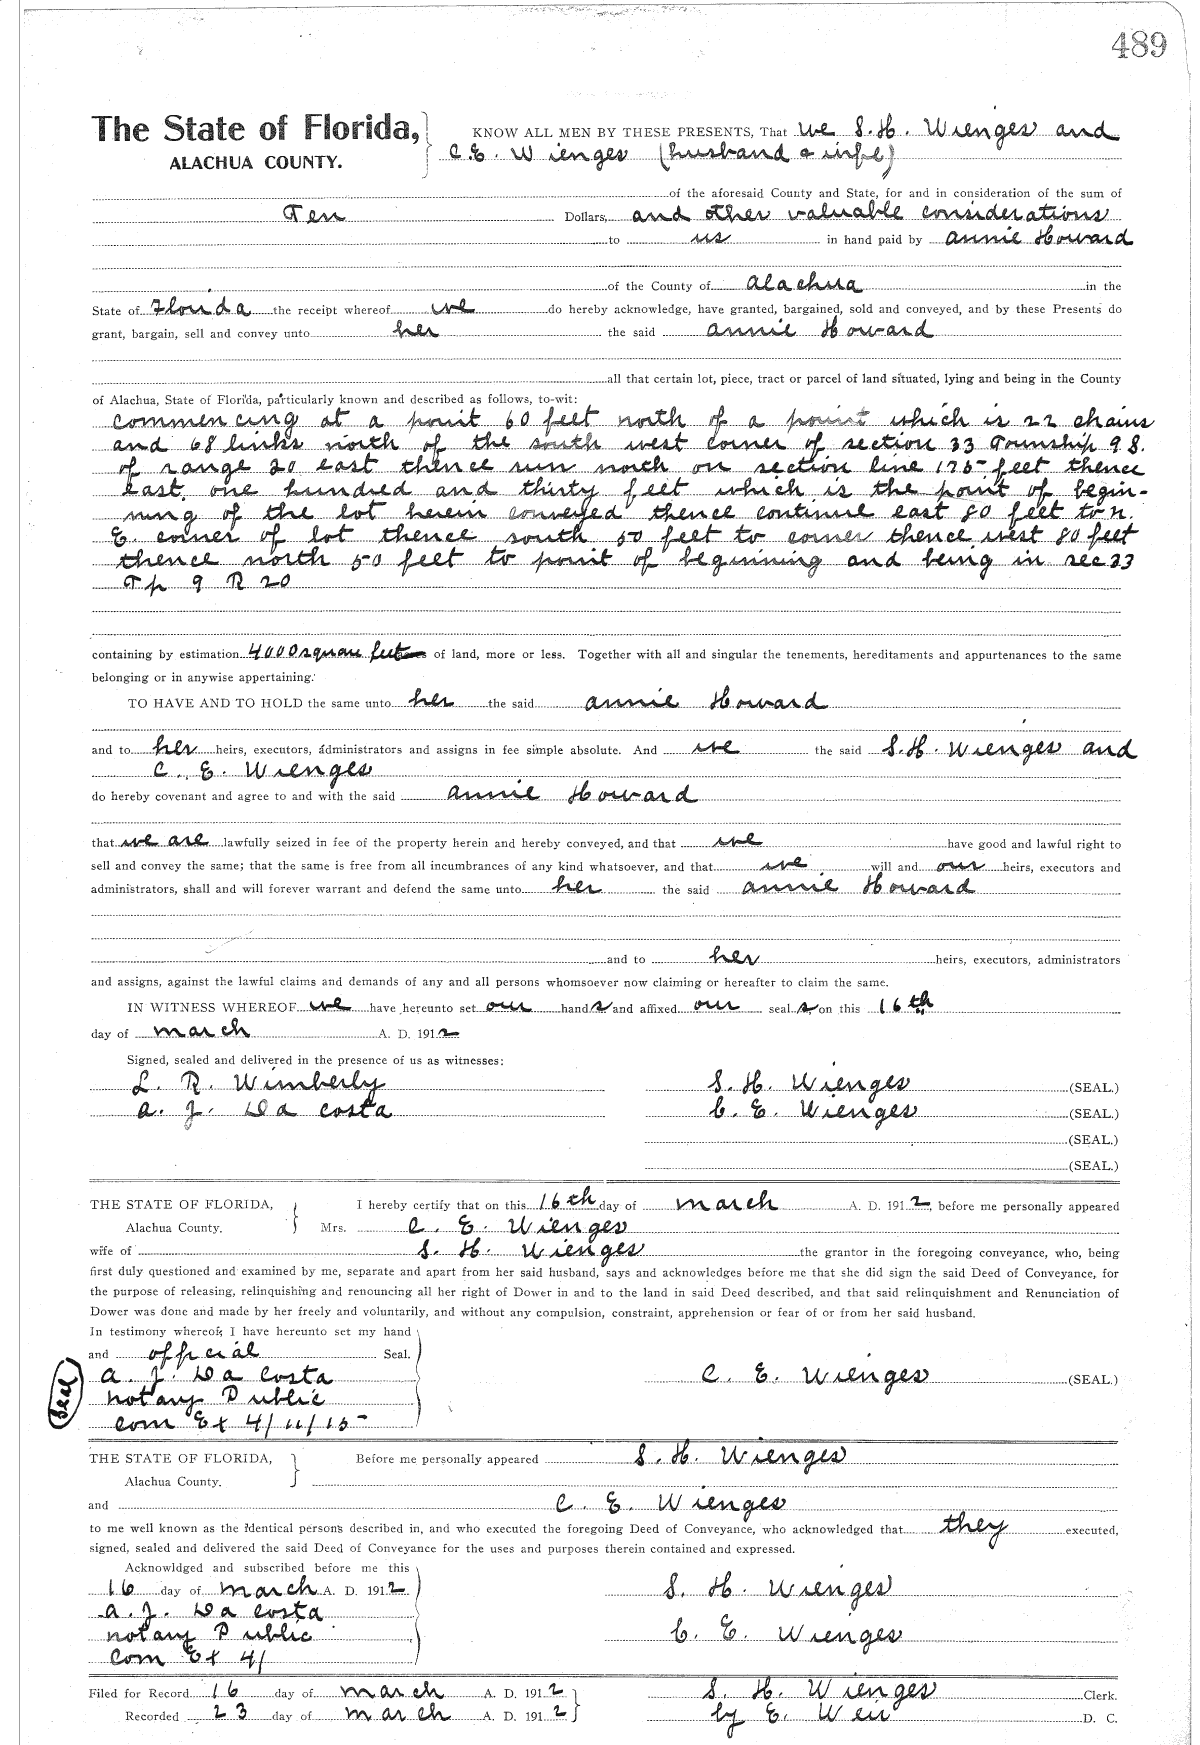 489
The State of Florida, KNOW ALL MEN BY THESE PRESENTS, That we S. H. Wienges and
ALACHUA COUNTY. C. E. Wienges (husband & wife)
of the aforesaid County and State, for and in consideration of the sum of
Ten Dollars, and other valuable considerations
to us in hand paid by Annie Howard
of the County of Alachua in the
State of Florida the receipt whereof we do hereby acknowledge, have granted, bargained, sold and conveyed, and by these Presents do
grant, bargain, sell and convey unto her the said Annie Howard
all that certain lot, piece, tract or parcel of land situated, lying and being in the County
of Alachua, State of Florida, particularly known and described as follows, to-wit:
Commencing at a point 60 feet north of a point which is 22 chains
and 68 links north of the south west corner of section 33 Township 9 S.
of range 20 east thence run north on section line 175 feet thence
East one hundred and thirty feet which is the point of begin-
ning of the lot herein conveyed thence continue east 80 feet to N.
E. corner of lot thence south 50 feet to corner thence west 80 feet
thence north 50 feet to point of beginning and being in sec 33
Tp 9 R 20
containing by estimation 4000 square feet of land, more or less. Together with all and singular the tenements, hereditaments and appurtenances to the same
belonging or in anywise appertaining.
TO HAVE AND TO HOLD the same unto her the said Annie Howard
and to her heirs, executors, administrators and assigns in fee simple absolute. And we the said S. H. Wienges and
C. E. Wienges
do hereby covenant and agree to and with the said Annie Howard
that we are lawfully seized in fee of the property herein and hereby conveyed, and that we have good and lawful right to
sell and convey the same; that the same is free from all incumbrances of any kind whatsoever, and that we will and our heirs, executors and
administrators, shall and will forever warrant and defend the same unto her the said Annie Howard
and to her heirs, executors, administrators
and assigns, against the lawful claims and demands of any and all persons whomsoever now claiming or hereafter to claim the same.
IN WITNESS WHEREOF we have hereunto set our hand s and affixed our seal s on this 16th
day of March A. D. 1912
Signed, sealed and delivered in the presence of us as witnesses:
L. R. Wimberly S. H. Wienges (SEAL.)
A. J. Da Costa C. E. Wienges (SEAL.)
(SEAL.)
(SEAL.)
THE STATE OF FLORIDA, I hereby certify that on this 16th day of March A. D. 1912, before me personally appeared
Alachua County. Mrs. C. E. Wienges
wife of S. H. Wienges the grantor in the foregoing conveyance, who, being
first duly questioned and examined by me, separate and apart from her said husband, says and acknowledges before me that she did sign the said Deed of Conveyance, for
the purpose of releasing, relinquishing and renouncing all her right of Dower in and to the land in said Deed described, and that said relinquishment and Renunciation of
Dower was done and made by her freely and voluntarily, and without any compulsion, constraint, apprehension or fear of or from her said husband.
In testimony whereof, I have hereunto set my hand
and official Seal.
Seal
A. J. Da Costa C. E. Wienges (SEAL.)
Notary Public
Com Ex 4/11/15
THE STATE OF FLORIDA, Before me personally appeared S. H. Wienges
Alachua County.
and C. E. Wienges
to me well known as the identical persons described in, and who executed the foregoing Deed of Conveyance, who acknowledged that they executed,
signed, sealed and delivered the said Deed of Conveyance for the uses and purposes therein contained and expressed.
Acknowldged and subscribed before me this
16 day of March A. D. 1912 S. H. Wienges
A. J. Da Costa
Notary Public C. E. Wienges
Com Ex 4/
Filed for Record 16 day of March A. D. 1912 S. H. Wienges Clerk.
Recorded 23 day of March A. D. 1912 by E. D. C.